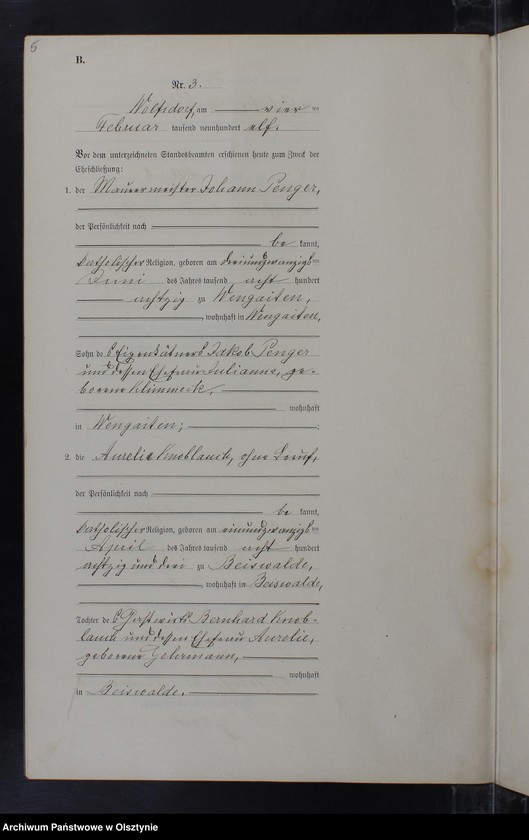 5
B.
Nr. 3.
Wolfsdorf, am vier ten
Februar tausend neunhundert elf.
Vor dem unterzeichneten Standesbeamten erschienen heute zum Zweck der
Eheschließung:
1. der Maurermeister Johann Penger,
der Persönlichkeit nach
be kannt,
katholischer Religion, geboren am dreiundzwanzigsten
Juni des Jahres tausend acht hundert
achtzig zu Wengaiten,
, wohnhaft in Wengaiten,
Sohn des Eigenkätners Jakob Penger
und dessen Ehefrau Julianna, ge-
borene
wohnhaft
in Wengaiten;
2. die Aurelie Knoblauch, ohne Beruf,
der Persönlichkeit nach
be kannt,
katholischer Religion, geboren am einundzwanzigsten
April des Jahres tausend acht hundert
achtzig und drei zu Beiswalde,
, wohnhaft in Beiswalde,
Tochter des Gastwirts Bernhard Knob-
lauch und dessen Ehefrau Aurelie,
geborene Gehrmann,
wohnhaft
in Beiswalde.
Archiwum Państwowe w Olsztynie